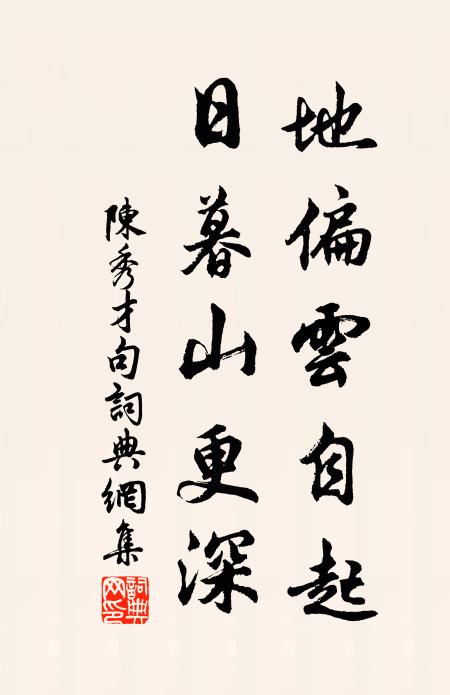 地偏雲自起
日暮山更深
陳秀才句詞典網集
詞典網印